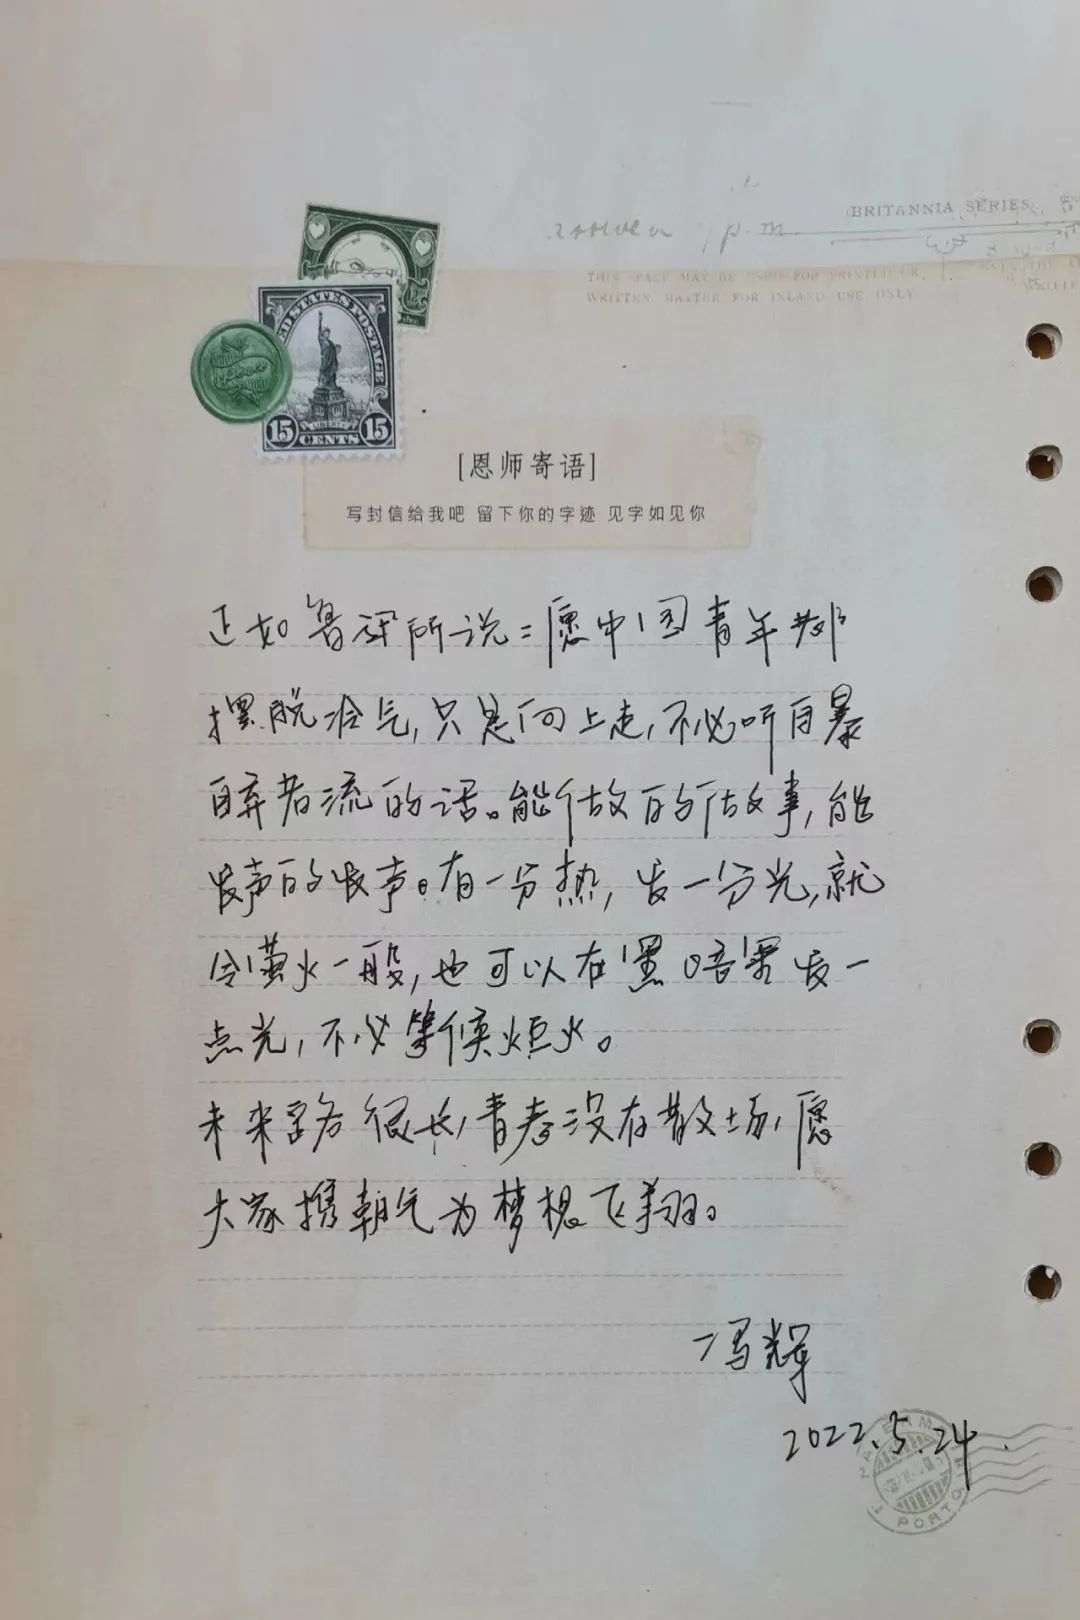 BRITANNIA SERIES
THIS SPACE MAY BE USED FOR PRINTED OR
WRITTEN MATTER FOR INLAND USE ONLY
STATES POSTAGE
LIBERTY
15 CENTS 15
[恩师寄语]
写封信给我吧 留下你的字迹 见字如见你
正如鲁迅所说：愿中国青年都
摆脱冷气，只是向上走，不必听自暴
自弃者流的话。能做的做事，能
发声的发声。有一分热，发一分光，就
令萤火一般，也可以在黑暗里发一
点光，不必等候炬火。
未来路很长，青春没有散场，愿
大家携朝气为梦想飞翔。
冯辉
2022.5.24.
PORTO